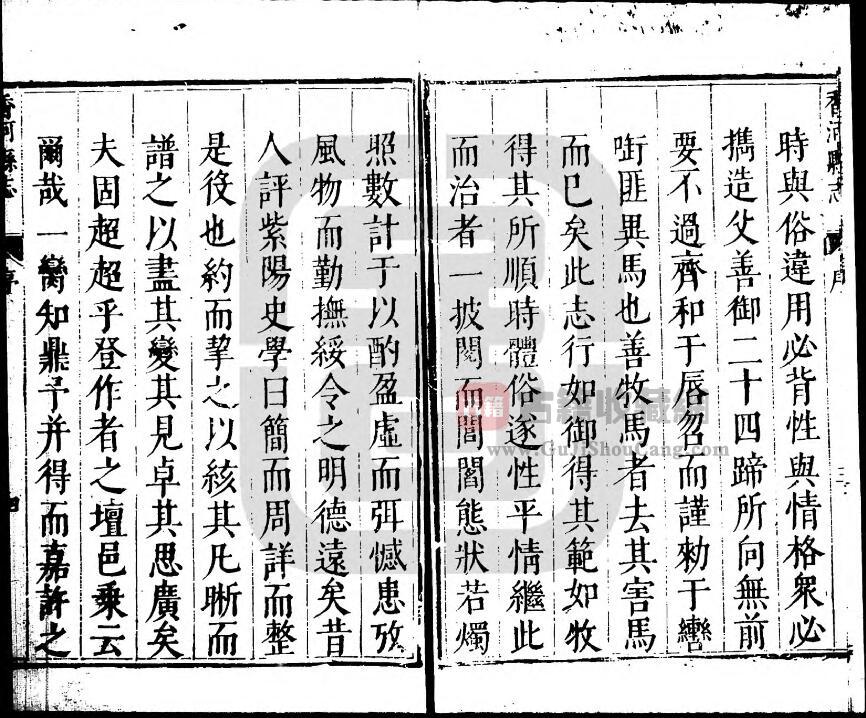 香河縣志
序
三
時與俗違用必背性與情格衆必
擕造父善御二十四蹄所向無前
要不過齊和于唇忽而謹勑于轡
㗸匪異馬也善牧馬者去其害馬
而已矣此志行如御得其範如牧
得其所順時體俗遂性平情繼此
而治者一披閱而閭閻態狀若燭
照數計于以酌盈虛而弭憾患攷
風物而勤撫綏令之明德遠矣昔
人評紫陽史學曰簡而周詳而整
是役也約而挚之以絃其凡晰而
譜之以盡其變其見卓其思廣矣
夫固超超乎登作者之壇邑乗云
爾哉一臠知鼎予并得而嘉許之
香河縣志
序
四
古籍
古籍收藏網
www.GuJiShouCang.com